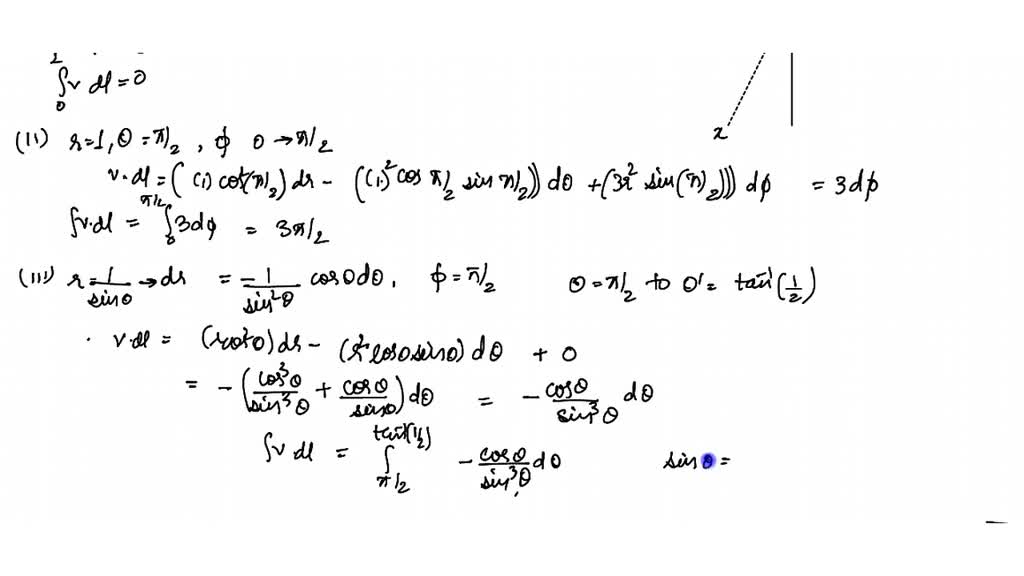 ∫₀² v dl = 0
x
(II) r=1, θ = π/2, ϕ 0 → π/2
v·dl = ( (1) cos²(π/2) ) dr − ((1)² cos π/2 sin π/2)) dθ + (3r² sin(π/2))) dϕ = 3dϕ
∫v·dl = ∫₀^(π/2) 3dϕ = 3π/2
(III) r = 1/sinθ → dr = −1/sin²θ cosθ dθ, ϕ = π/2 θ = π/2 to θ' = tan⁻¹(1/2)
· v·dl = (r cos²θ) dr − (r² cosθ sinθ) dθ + 0
= −(cos³θ/sin³θ + cosθ/sinθ) dθ = − cosθ/sin³θ dθ
∫v dl = ∫_(π/2)^(tan⁻¹(1/2)) − cosθ/sin³θ dθ sinθ =